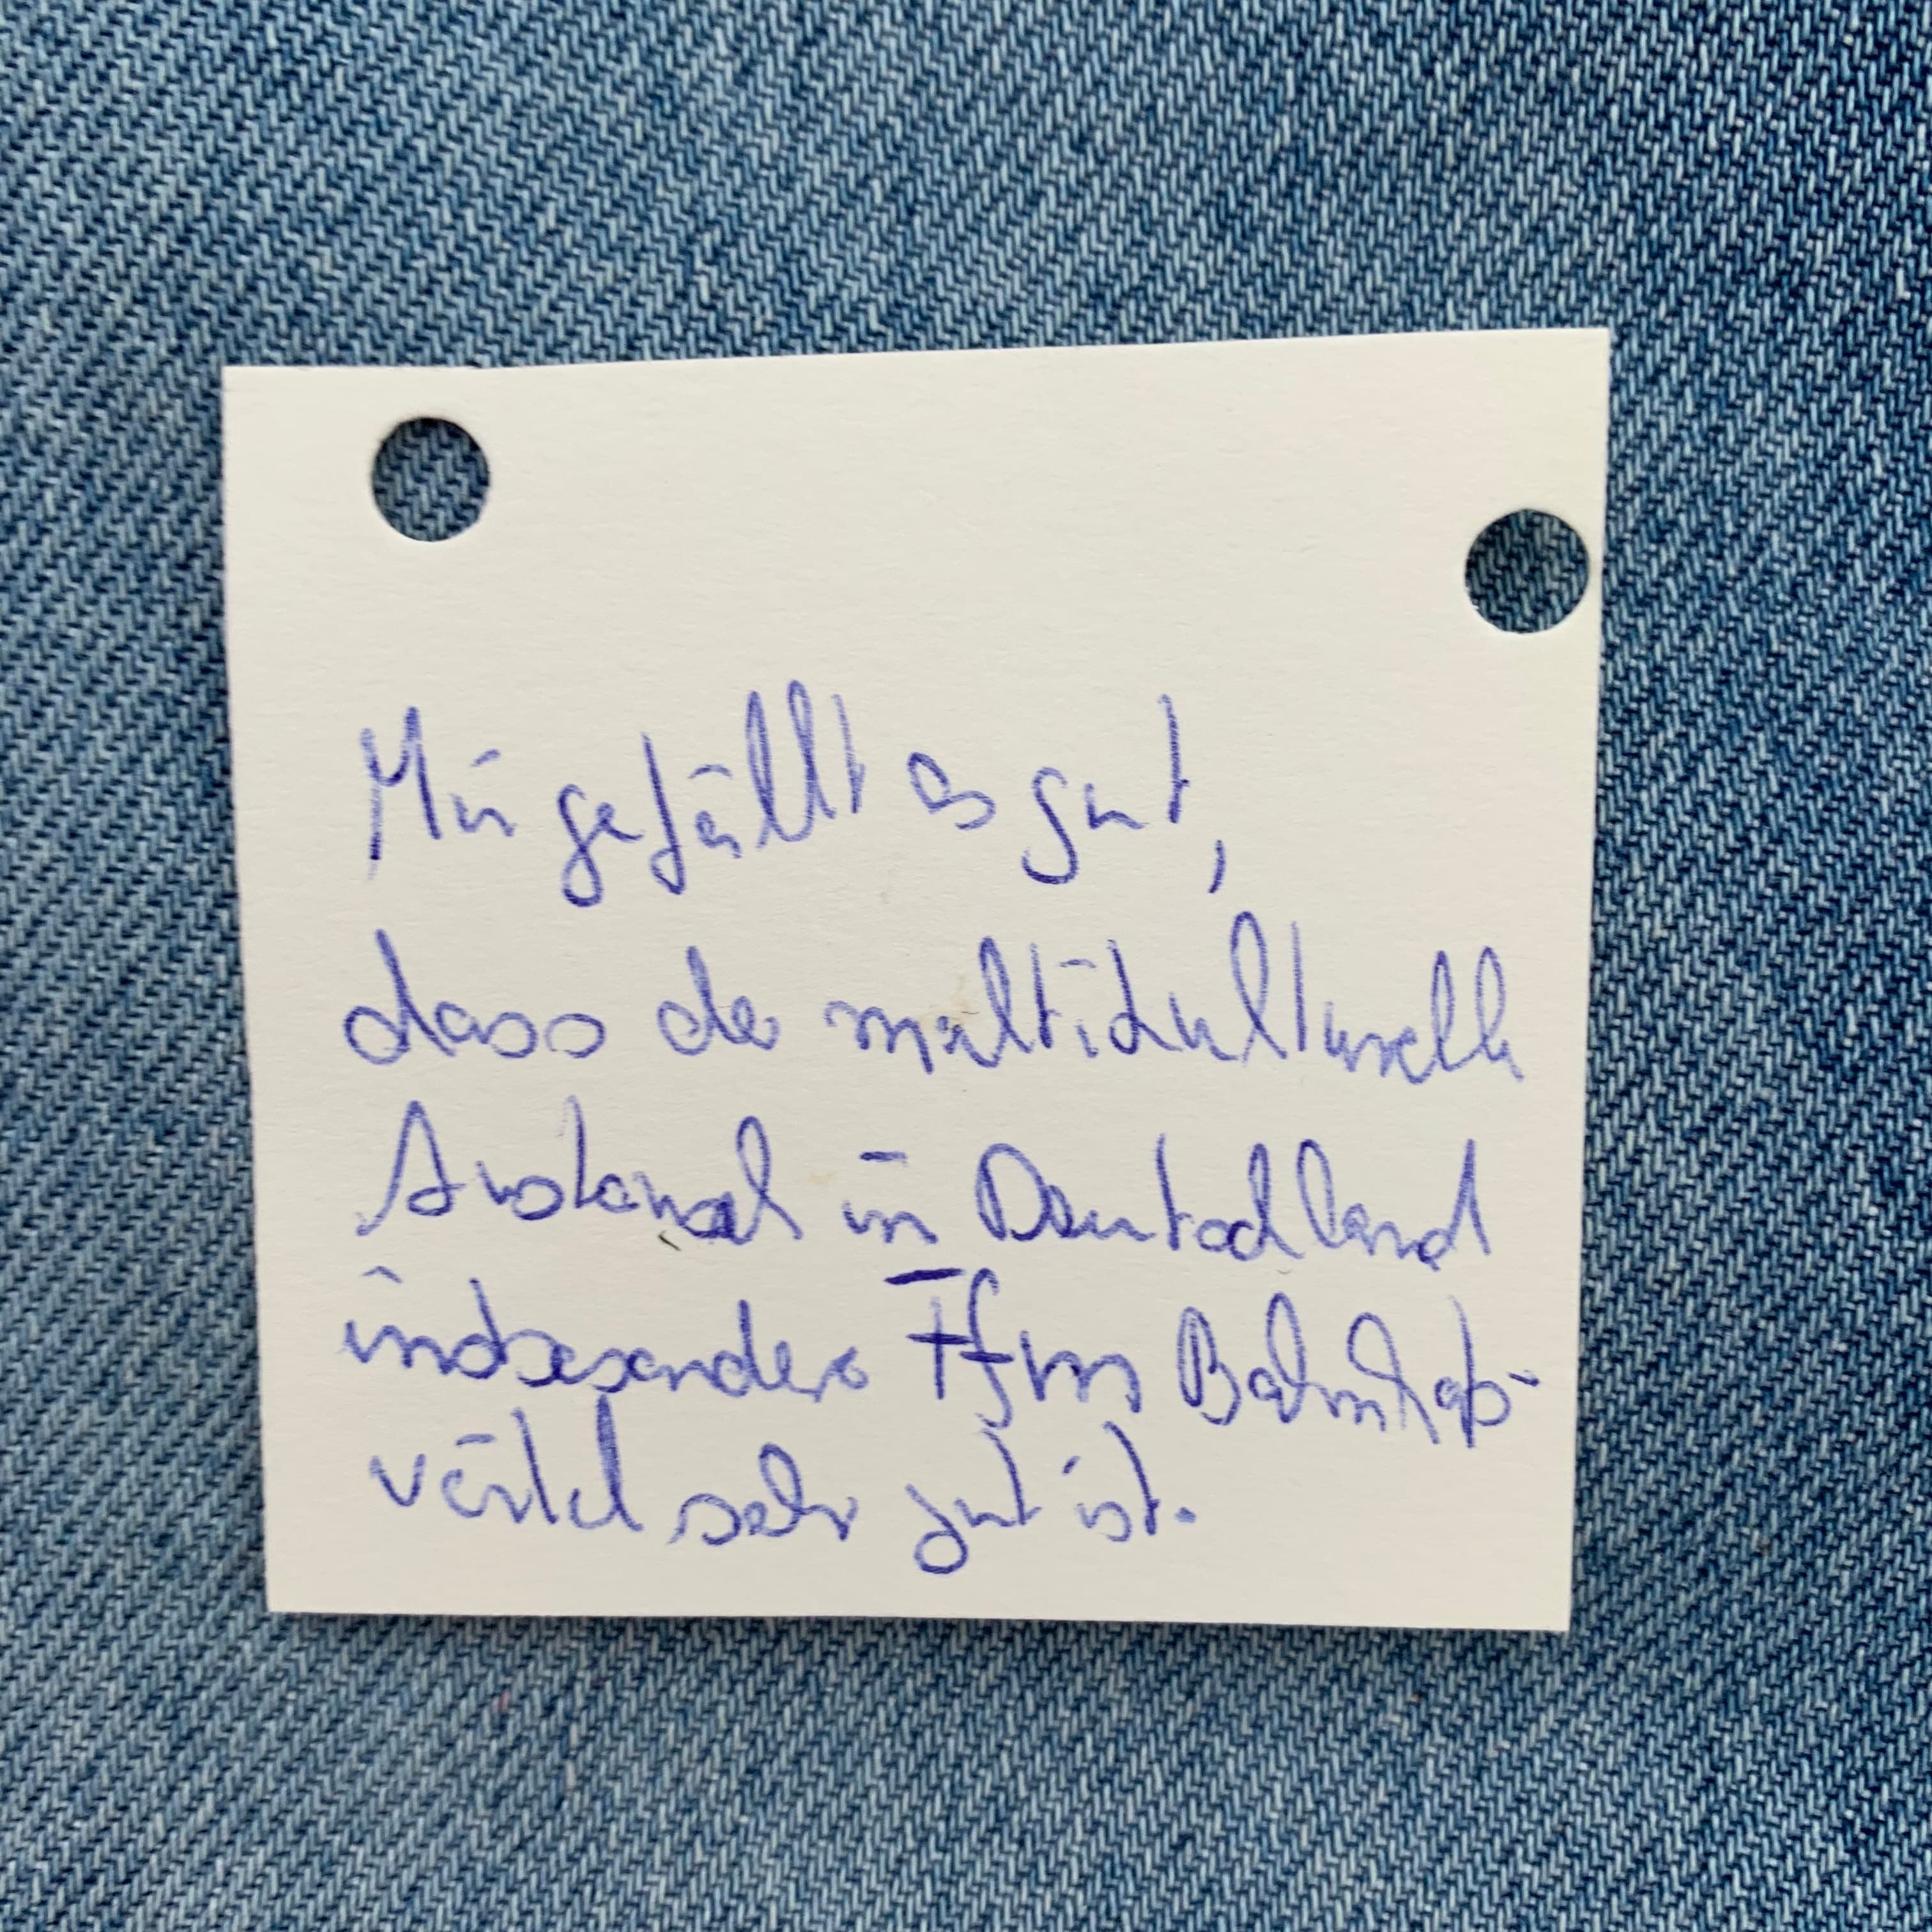 Mir gefällt es gut,
dass der multikulturelle
Austausch in Deutschland
insbesondere Ffm Bahnhofs-
viertel sehr gut ist.